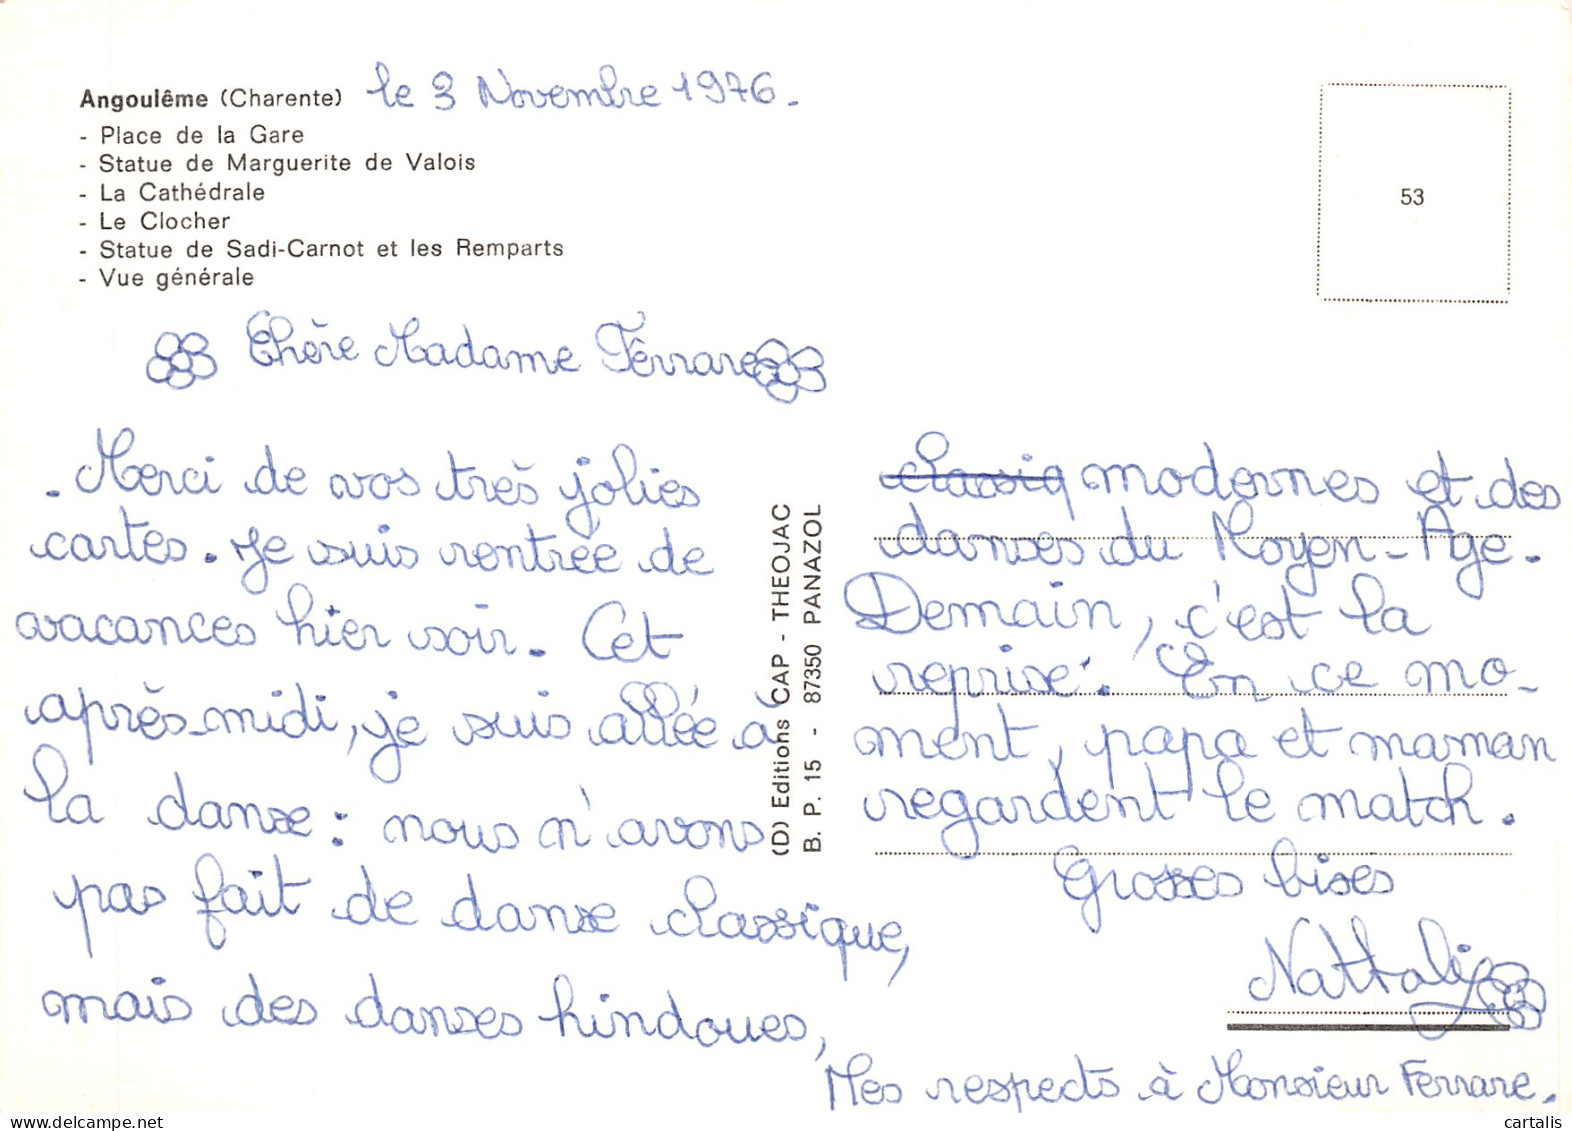 Angoulême (Charente) le 3 Novembre 1976.
- Place de la Gare
- Statue de Marguerite de Valois
- La Cathédrale
- Le Clocher
- Statue de Sadi-Carnot et les Remparts
- Vue générale
53
Chère Madame Ferrare
. Merci de vos très jolies
cartes. Je suis rentrée de
vacances hier soir. Cet
après-midi, je suis allée à
la danse : nous n'avons
pas fait de danse classique,
mais des danses hindoues,
(D) Editions CAP - THEOJAC
B. P. 15 - 87350 PANAZOL
classiq modernes et des
danses du Moyen-Age.
Demain, c'est la
reprise. En ce mo-
ment, papa et maman
regardent le match.
Grosses bises
Nathalie
Mes respects à Monsieur Ferrare.
cartalis